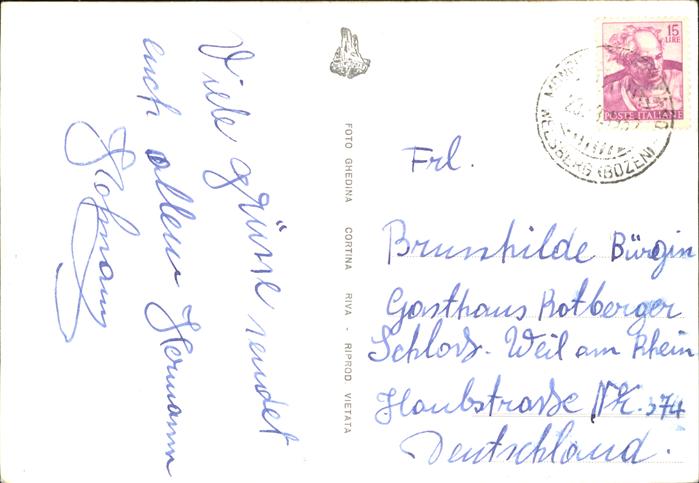 Viele grüsse sendet
euch allen Hermann
Hofmann
FOTO GHEDINA CORTINA RIVA - RIPROD VIETATA
15
LIRE
POSTE ITALIANE
WELSBERG (BOZEN)
Frl.
Brunshilde Bürgin
Gasthaus Rotberger
Schloss. Weil am Rhein
Haubstrasse Nr. 374
Deutschland.